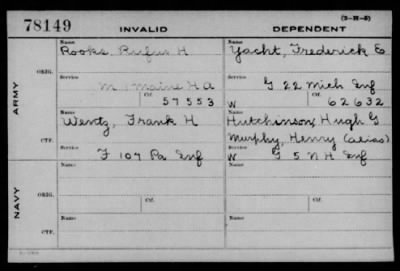 (3-H-5)
78149 INVALID DEPENDENT
ARMY
ORIG.
Name
Rooks, Rufus H
Service
M 1 Maine H A
Ctf.
57553
Name
Yacht, Frederick E
Service
G 22 Mich Inf
Ctf.
W 62632
CTF.
Name
Wentz, Frank H
Service
F 107 Pa Inf
Name
Hutchinson, Hugh G
Murphy, Henry (alias)
Service
W G 5 N H Inf
NAVY
ORIG.
Name
Service
Ctf.
Name
Service
Ctf.
CTF.
Name
Service
Name
Service